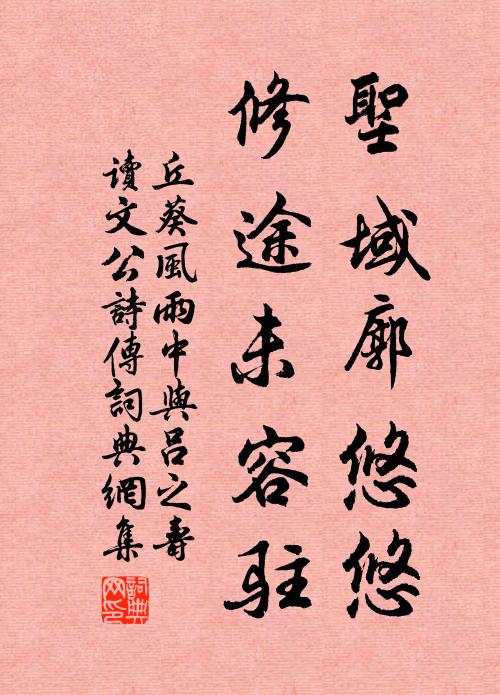 聖域廓悠悠
修途未容駐
丘葵風雨中與呂之壽
讀文公詩傳詞典網集
詞典网印